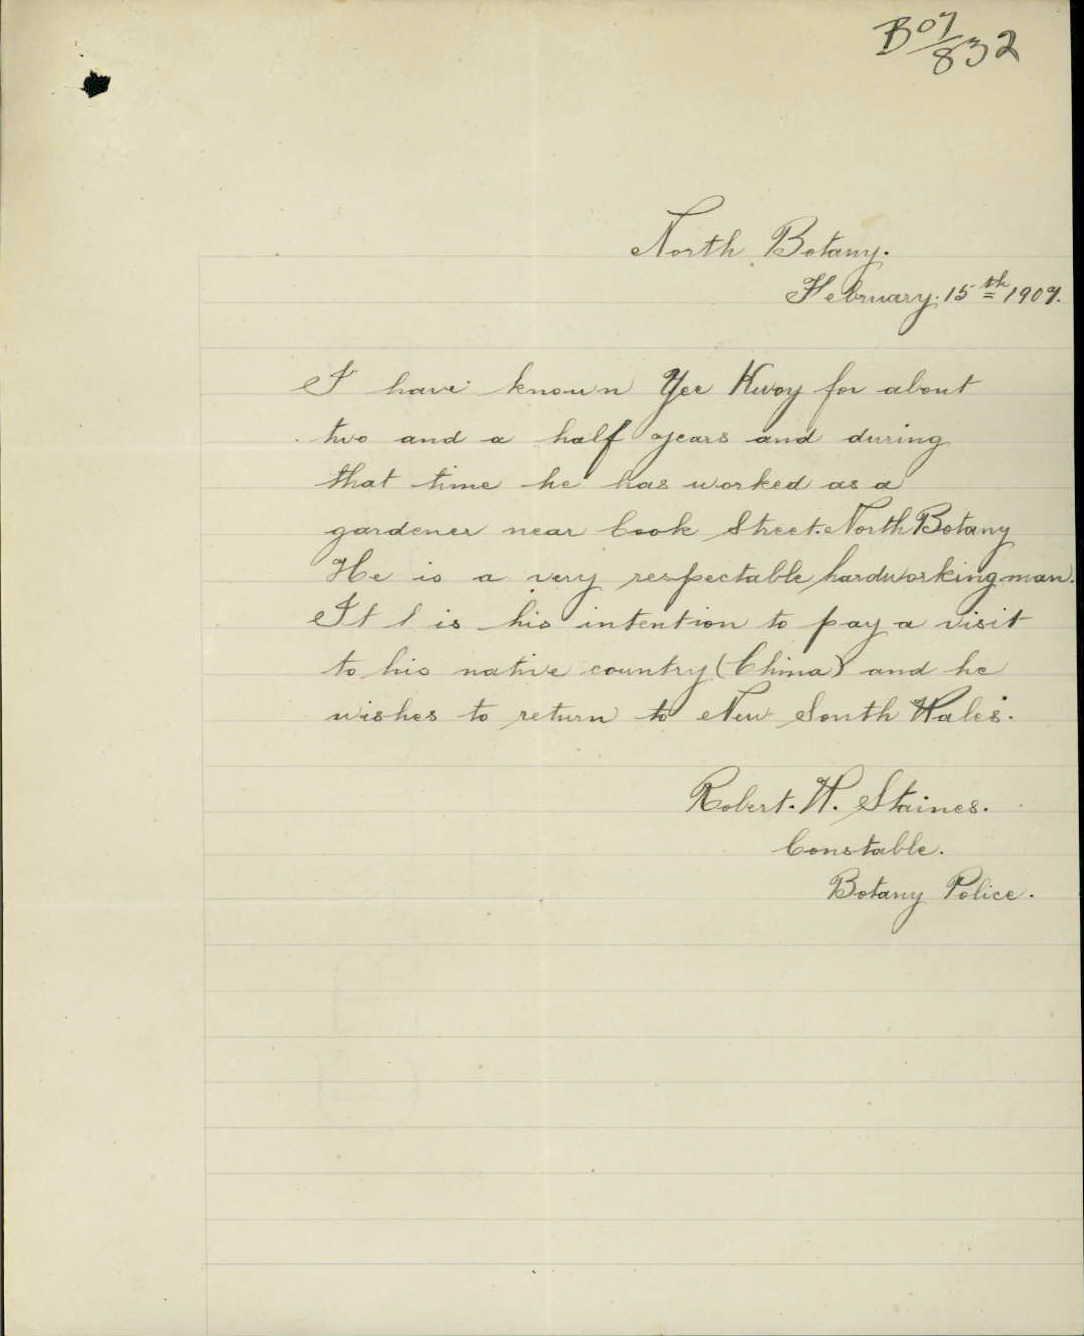 B07/832
North Botany.
February. 15th 1907.
I have known Yee Kwoy for about
two and a half years and during
that time he has worked as a
gardener near Cook Street. North Botany
He is a very respectable hardworking man.
It is his intention to pay a visit
to his native country (China) and he
wishes to return to New South Wales.
Robert. H. Staines.
Constable.
Botany Police.